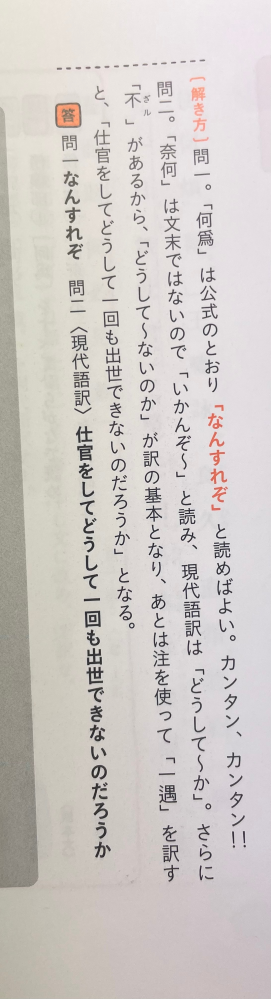 〔解き方〕問一。「何爲」は公式のとおり「なんすれぞ」と読めばよい。カンタン、カンタン!!
問二。「奈何」は文末ではないので「いかんぞ〜」と読み、現代語訳は「どうして〜か」。さらに
「不ざル」があるから、「どうして〜ないのか」が訳の基本となり、あとは注を使って「一遇」を訳す
と、「仕官をしてどうして一回も出世できないのだろうか」となる。
答 問一なんすれぞ 問二〈現代語訳〉仕官をしてどうして一回も出世できないのだろうか